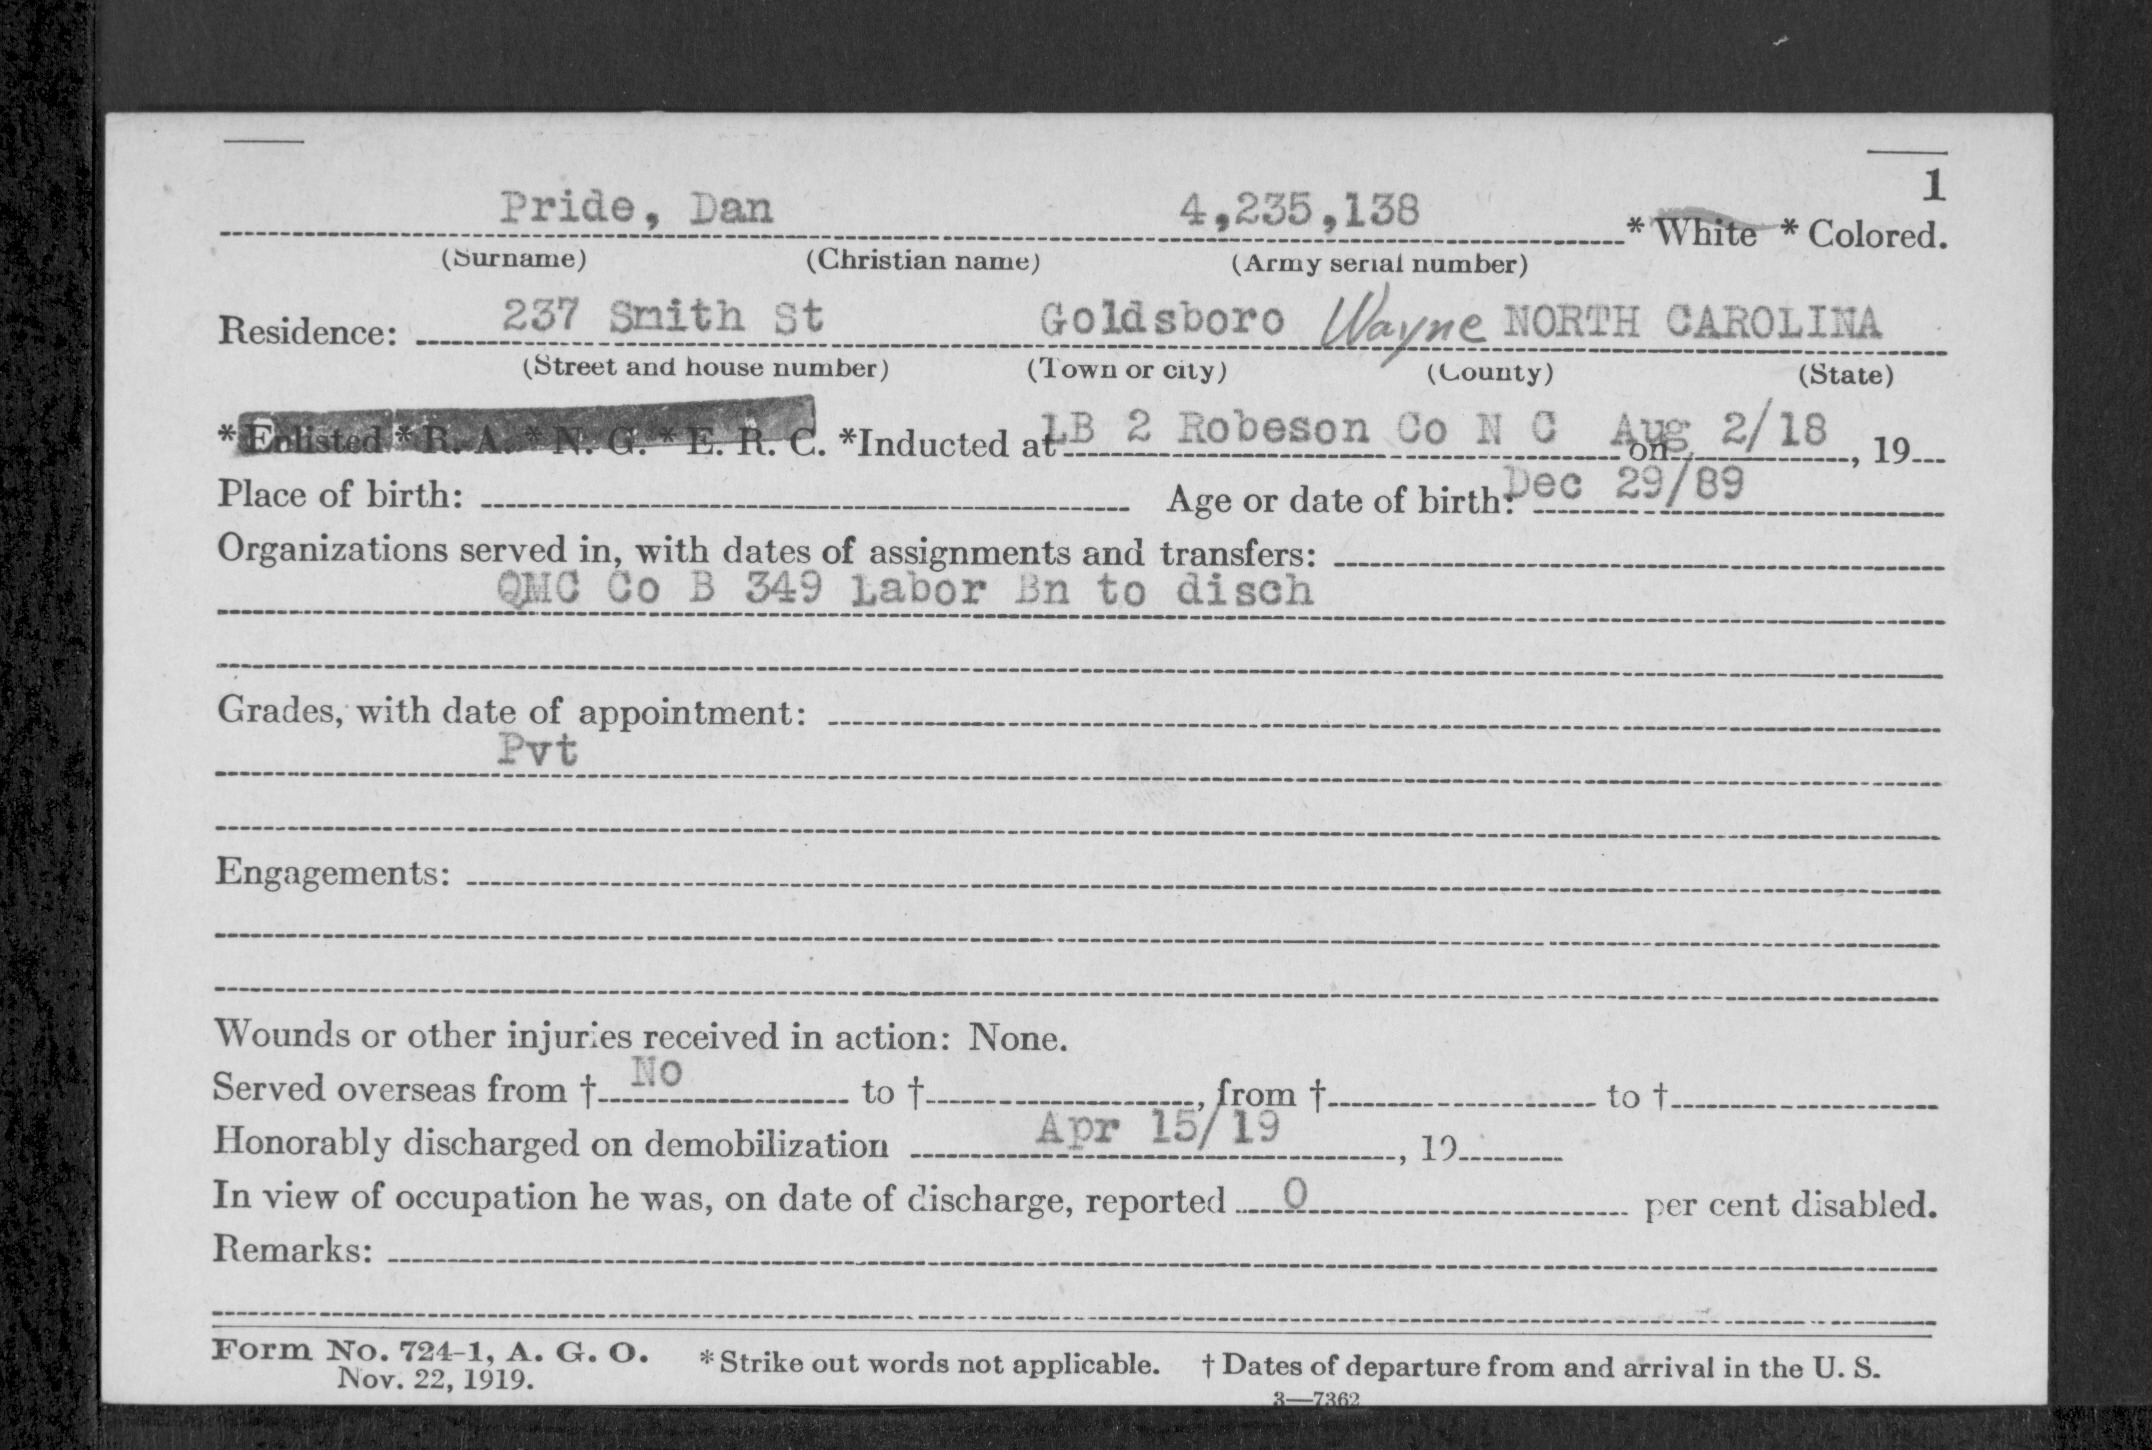 1
Pride, Dan 4,235,138 * White * Colored.
(Surname) (Christian name) (Army serial number)
Residence: 237 Smith St Goldsboro Wayne NORTH CAROLINA
(Street and house number) (Town or city) (County) (State)
* Enlisted * R. A. * N. G. * E. R. C. *Inducted at LB 2 Robeson Co N C on Aug 2/18, 19
Place of birth: Age or date of birth: Dec 29/89
Organizations served in, with dates of assignments and transfers:
QMC Co B 349 Labor Bn to disch
Grades, with date of appointment:
Pvt
Engagements:
Wounds or other injuries received in action: None.
Served overseas from † No to †, from † to †
Honorably discharged on demobilization Apr 15/19, 19
In view of occupation he was, on date of discharge, reported 0 per cent disabled.
Remarks:
Form No. 724-1, A. G. O. * Strike out words not applicable. † Dates of departure from and arrival in the U. S.
Nov. 22, 1919.
3—7362